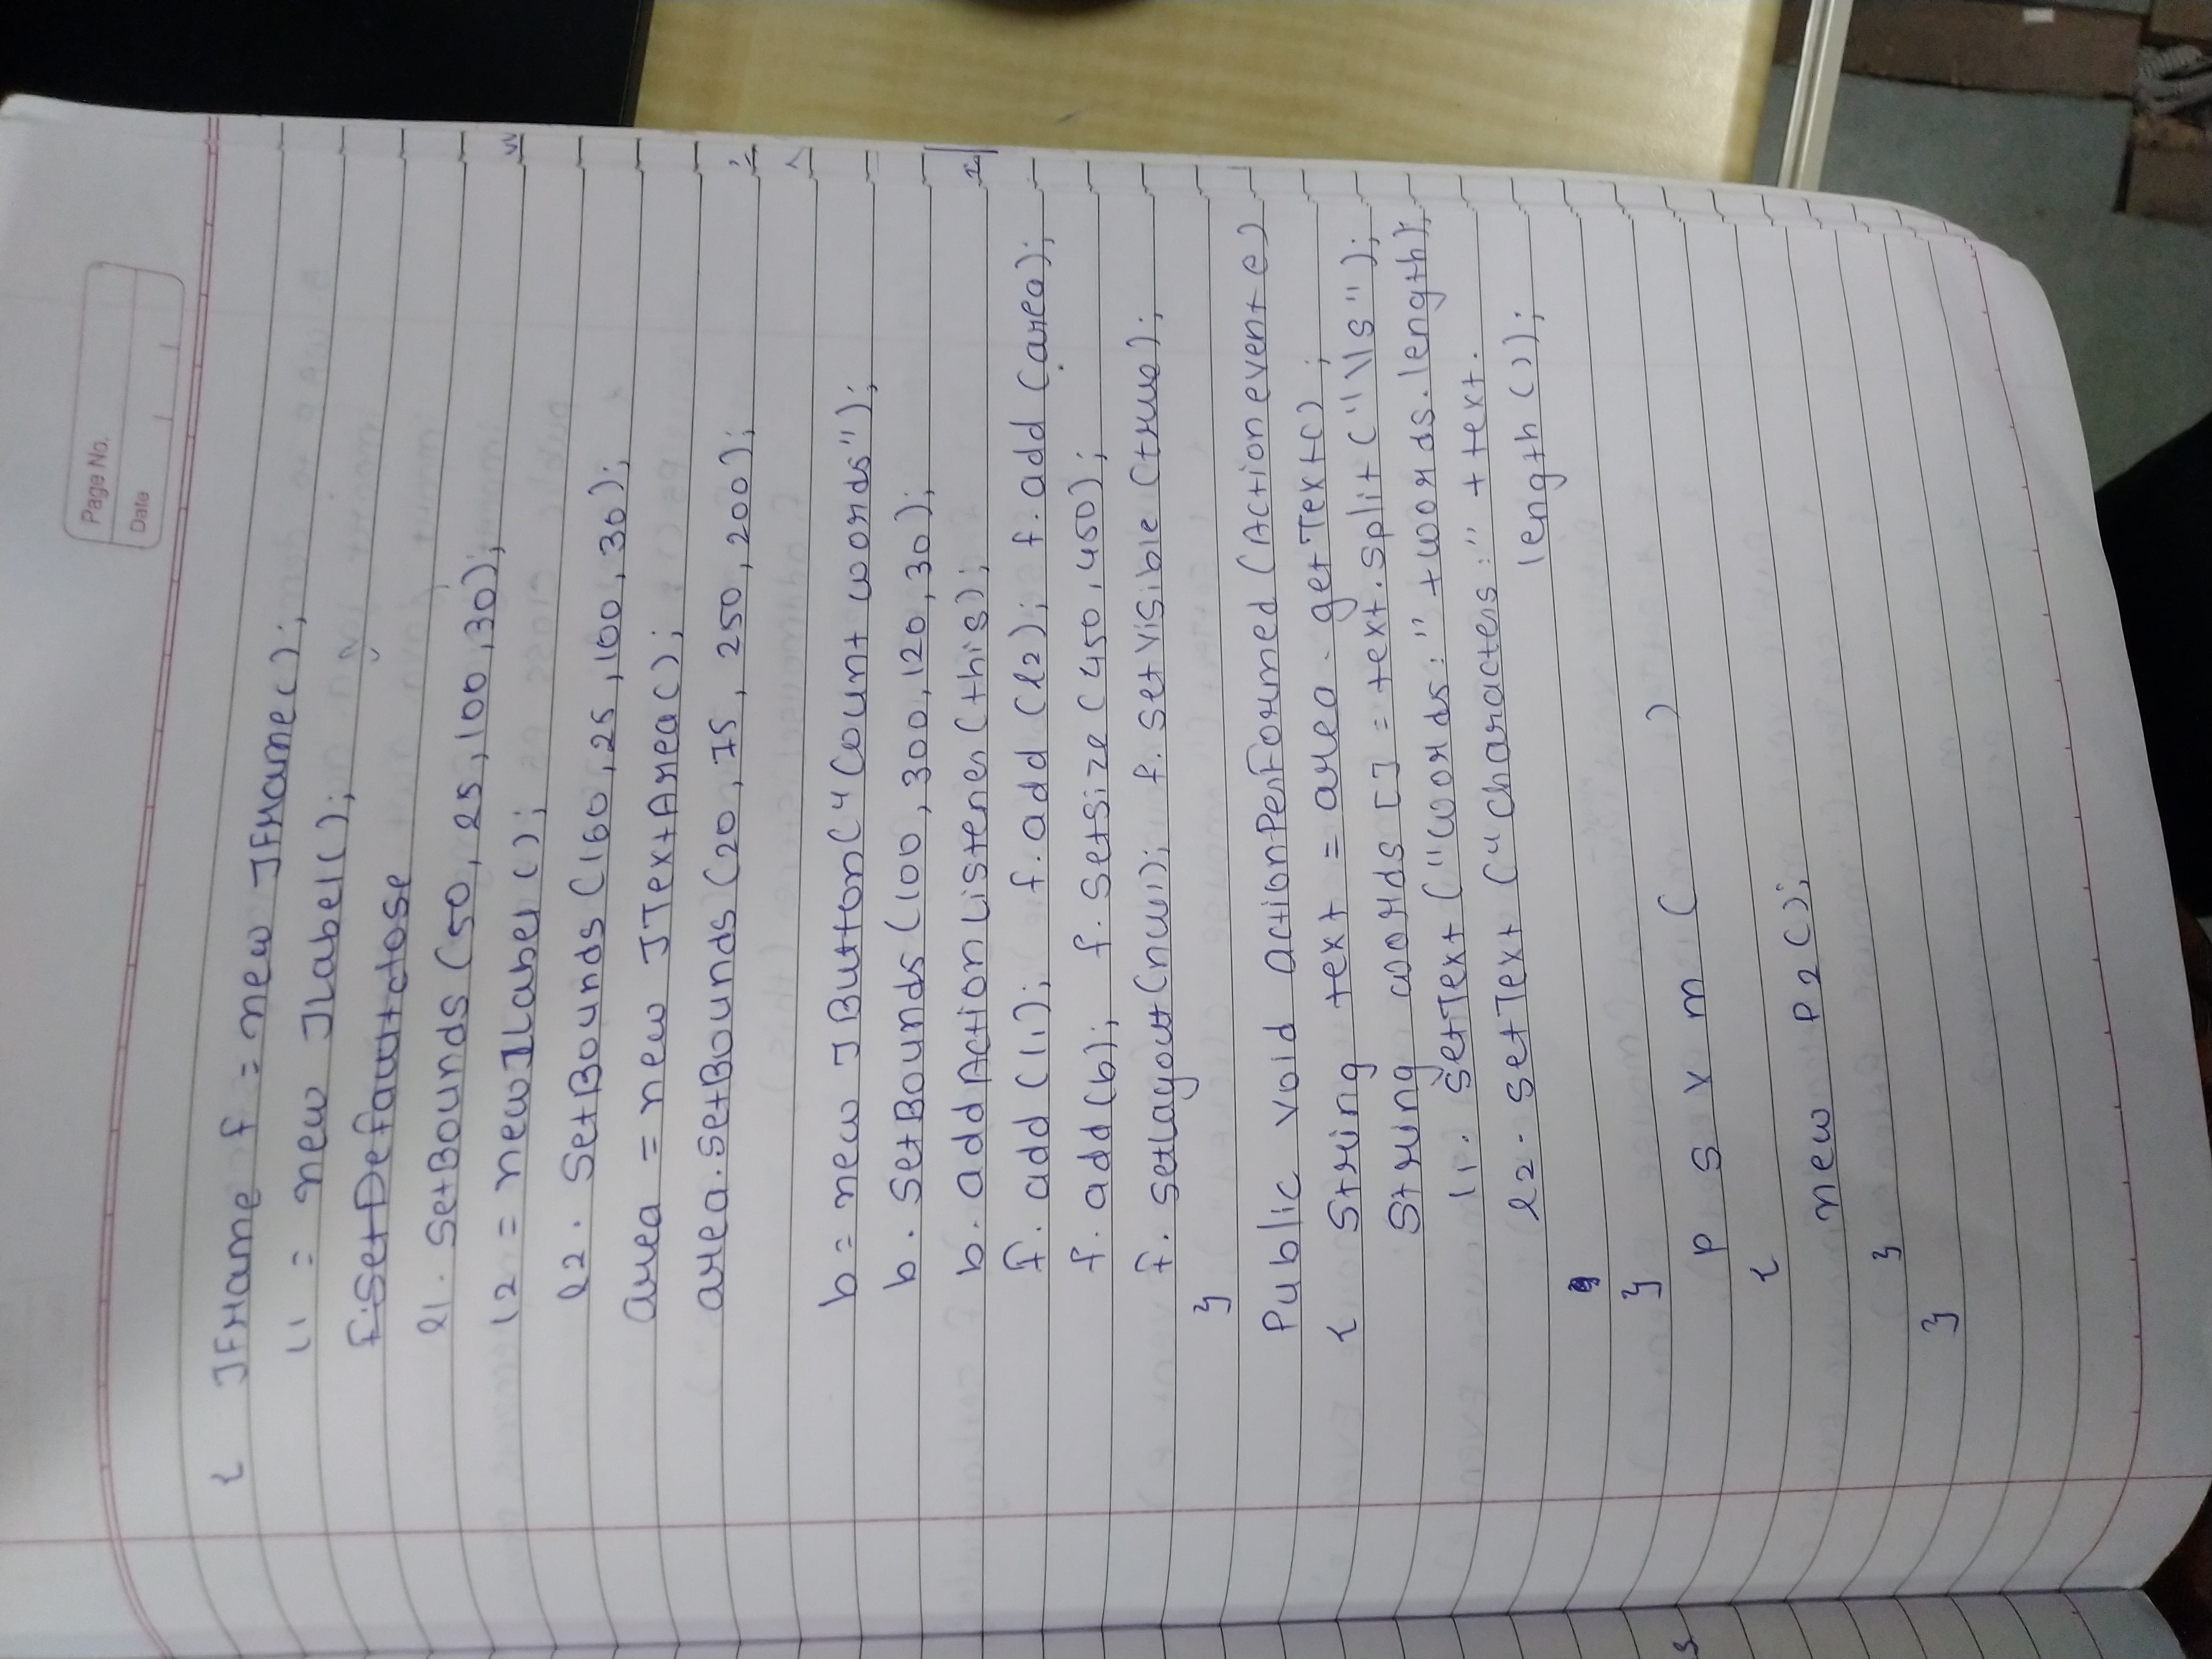 Page No.
Date
{ JFrame f = new JFrame();
l1 = new JLabel();
f.SetDefaultclose
l1. SetBounds (50, 25, 100, 30);
l2 = new JLabel ();
l2. SetBounds (160, 25, 100, 30);
area = new JTextArea();
area. SetBounds (20, 75, 250, 200);
b = new JButton("Count words");
b. SetBounds (100, 300, 120, 30);
b. addActionListener (this);
f. add (l1); f. add (l2); f. add (area);
f. add (b); f. SetSize (450, 450);
f. setLayout (null); f. set Visible (true);
}
Public void actionPerFormed (Action event e)
{ String text = area. getText();
String words [] = text. split ("\\s");
l1. setText ("words:" + words. length);
l2. setText ("characters:" + text.
length ());
}
P S V m ( )
{
new P2 ();
}
}